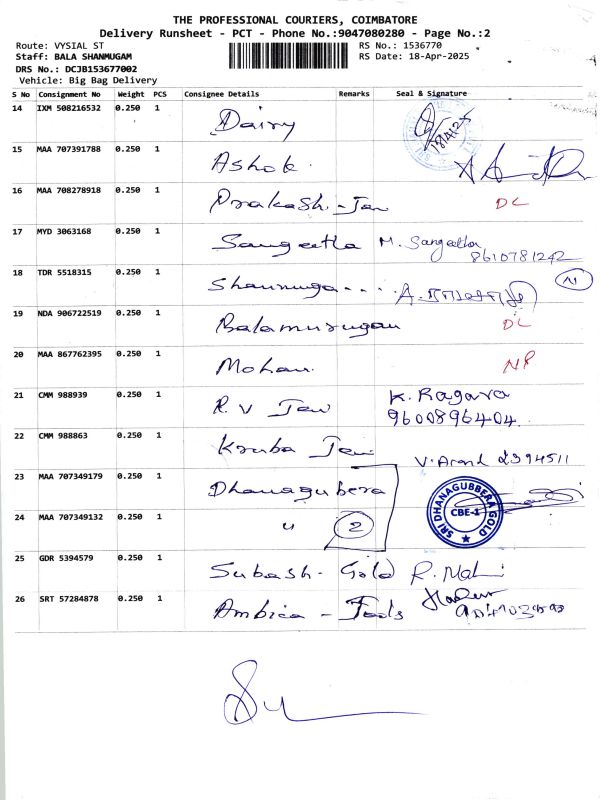 THE PROFESSIONAL COURIERS, COIMBATORE
Delivery Runsheet - PCT - Phone No.:9047080280 - Page No.:2
Route: VYSIAL ST RS No.: 1536770
Staff: BALA SHANMUGAM RS Date: 18-Apr-2025
DRS No.: DCJB153677002
Vehicle: Big Bag Delivery
S No Consignment No Weight PCS Consignee Details Remarks Seal & Signature
14 IXM 508216532 0.250 1 Dairy 18/4/25
15 MAA 707391788 0.250 1 Ashok.
16 MAA 708278918 0.250 1 Prakash - Jew DL
17 MYD 3063168 0.250 1 Sangeetha M. Sangeetha
8610781242
18 TDR 5518315 0.250 1 Shanmuga - - - A.
19 NDA 906722519 0.250 1 Balamurugan DL
20 MAA 867762395 0.250 1 Mohan. NP
21 CMM 988939 0.250 1 R. V Jew K. Ragava
9600896404
22 CMM 988863 0.250 1 Kruba Jew V. Anand 2394511
23 MAA 707349179 0.250 1 Dhanagubera
24 MAA 707349132 0.250 1 " 2
SRI DHANAGUBBERA GOLD
CBE-1
25 GDR 5394579 0.250 1 Subash - Gold R. Mohi
26 SRT 57284878 0.250 1 Ambica - Fads